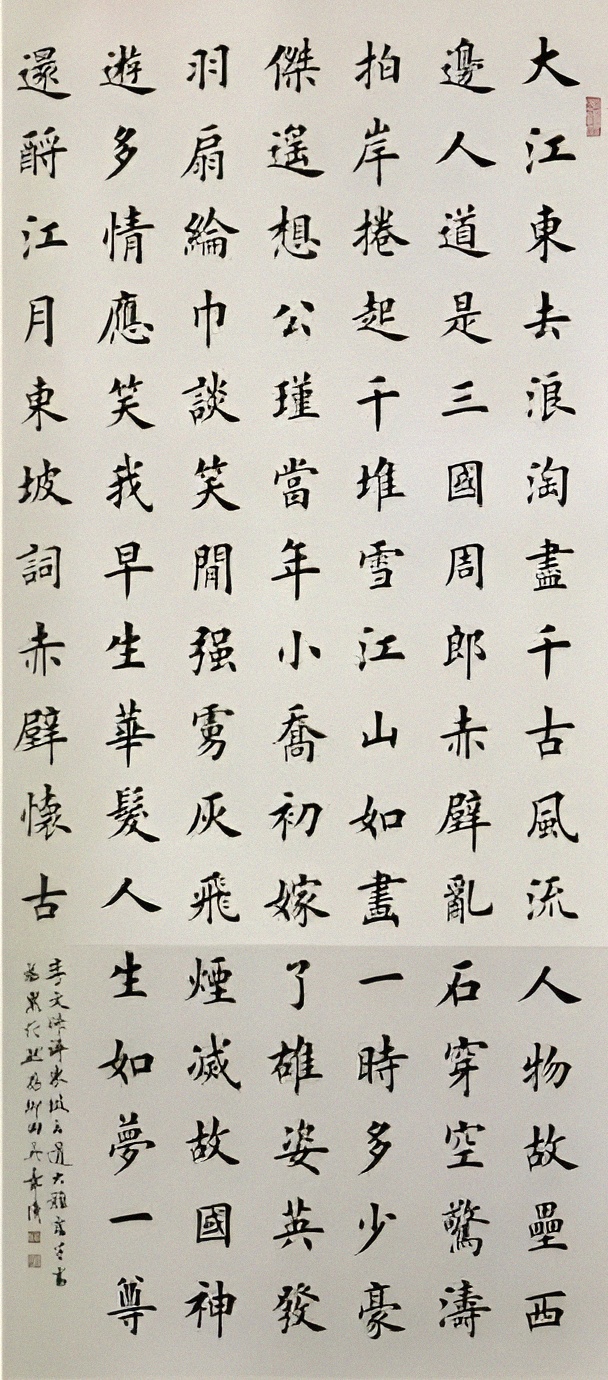 大江東去浪淘盡千古風流人物故壘西
邊人道是三國周郎赤壁亂石穿空驚濤
拍岸捲起千堆雪江山如畫一時多少豪
傑遥想公瑾當年小喬初嫁了雄姿英發
羽扇綸巾談笑閒强虜灰飛煙滅故國神
遊多情應笑我早生華髮人生如夢一尊
還酹江月東坡詞赤壁懷古